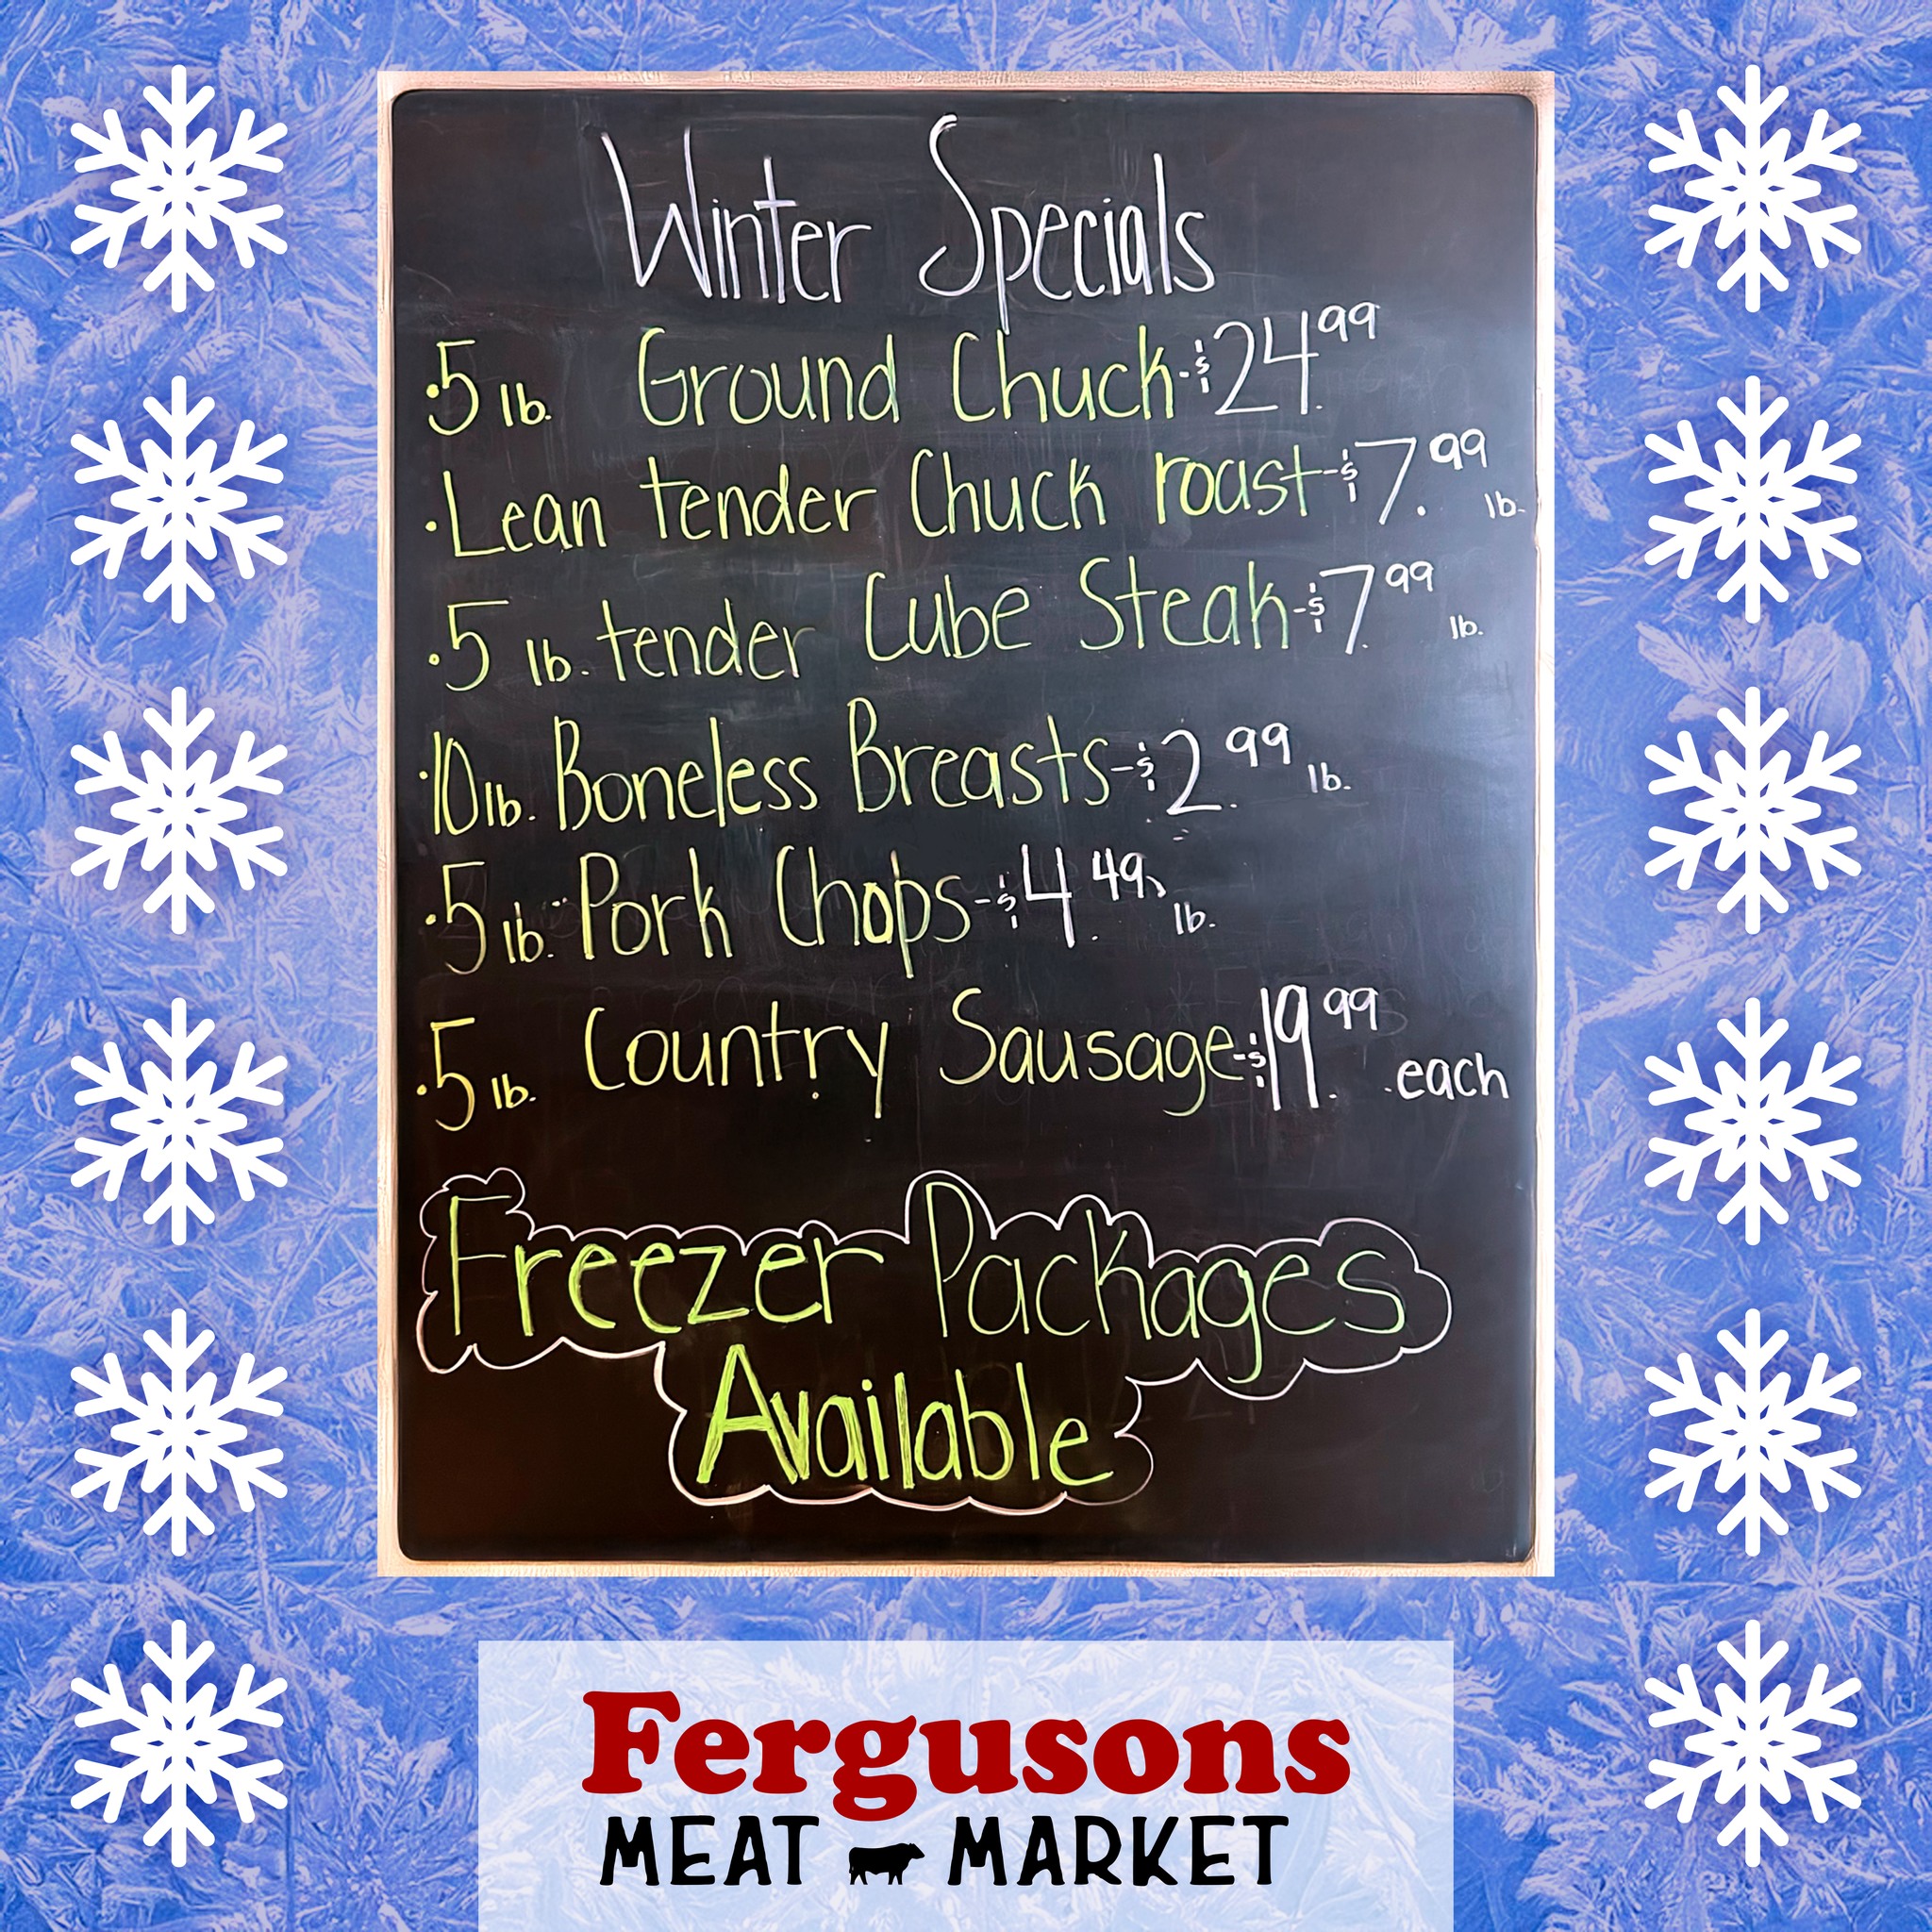 Winter Specials
·5 lb. Ground Chuck-$24.99
·Lean tender Chuck roast-$7.99 lb.
·5 lb. tender Cube Steak-$7.99 lb.
·10 lb. Boneless Breasts-$2.99 lb.
·5 lb. Pork Chops-$4.49 lb.
·5 lb. Country Sausage-$19.99 each
Freezer Packages
Available
Fergusons
MEAT MARKET